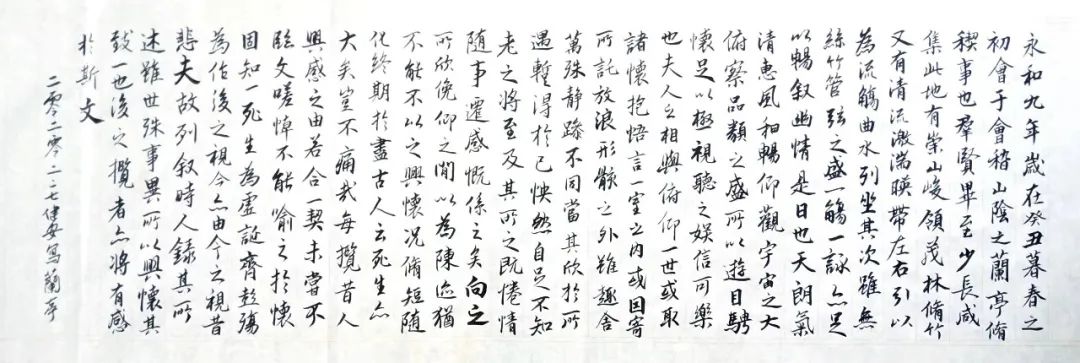 永和九年歲在癸丑暮春之
初會于會稽山陰之蘭亭脩
稧事也羣賢畢至少長咸
集此地有崇山峻領茂林脩竹
又有清流激湍暎帶左右引以
為流觴曲水列坐其次雖無
絲竹管弦之盛一觴一詠亦足
以暢叙幽情是日也天朗氣
清惠風和暢仰觀宇宙之大
俯察品類之盛所以遊目騁
懷足以極視聽之娛信可樂
也夫人之相與俯仰一世或取
諸懷抱悟言一室之內或因寄
所託放浪形骸之外雖趣舍
萬殊静躁不同當其欣於所
遇暫得於己怏然自足不知
老之將至及其所之既惓情
隨事遷感慨係之矣向之
所欣俛仰之閒以為陳迹猶
不能不以之興懷況脩短隨
化終期於盡古人云死生亦
大矣豈不痛哉每攬昔人
興感之由若合一契未嘗不
臨文嗟悼不能喻之於懷
固知一死生為虛誕齊彭殤
為作後之視今亦由今之視昔
悲夫故列叙時人錄其所
述雖世殊事異所以興懷其
致一也後之攬者亦將有感
於斯文
二零二零二二七健安寫蘭亭